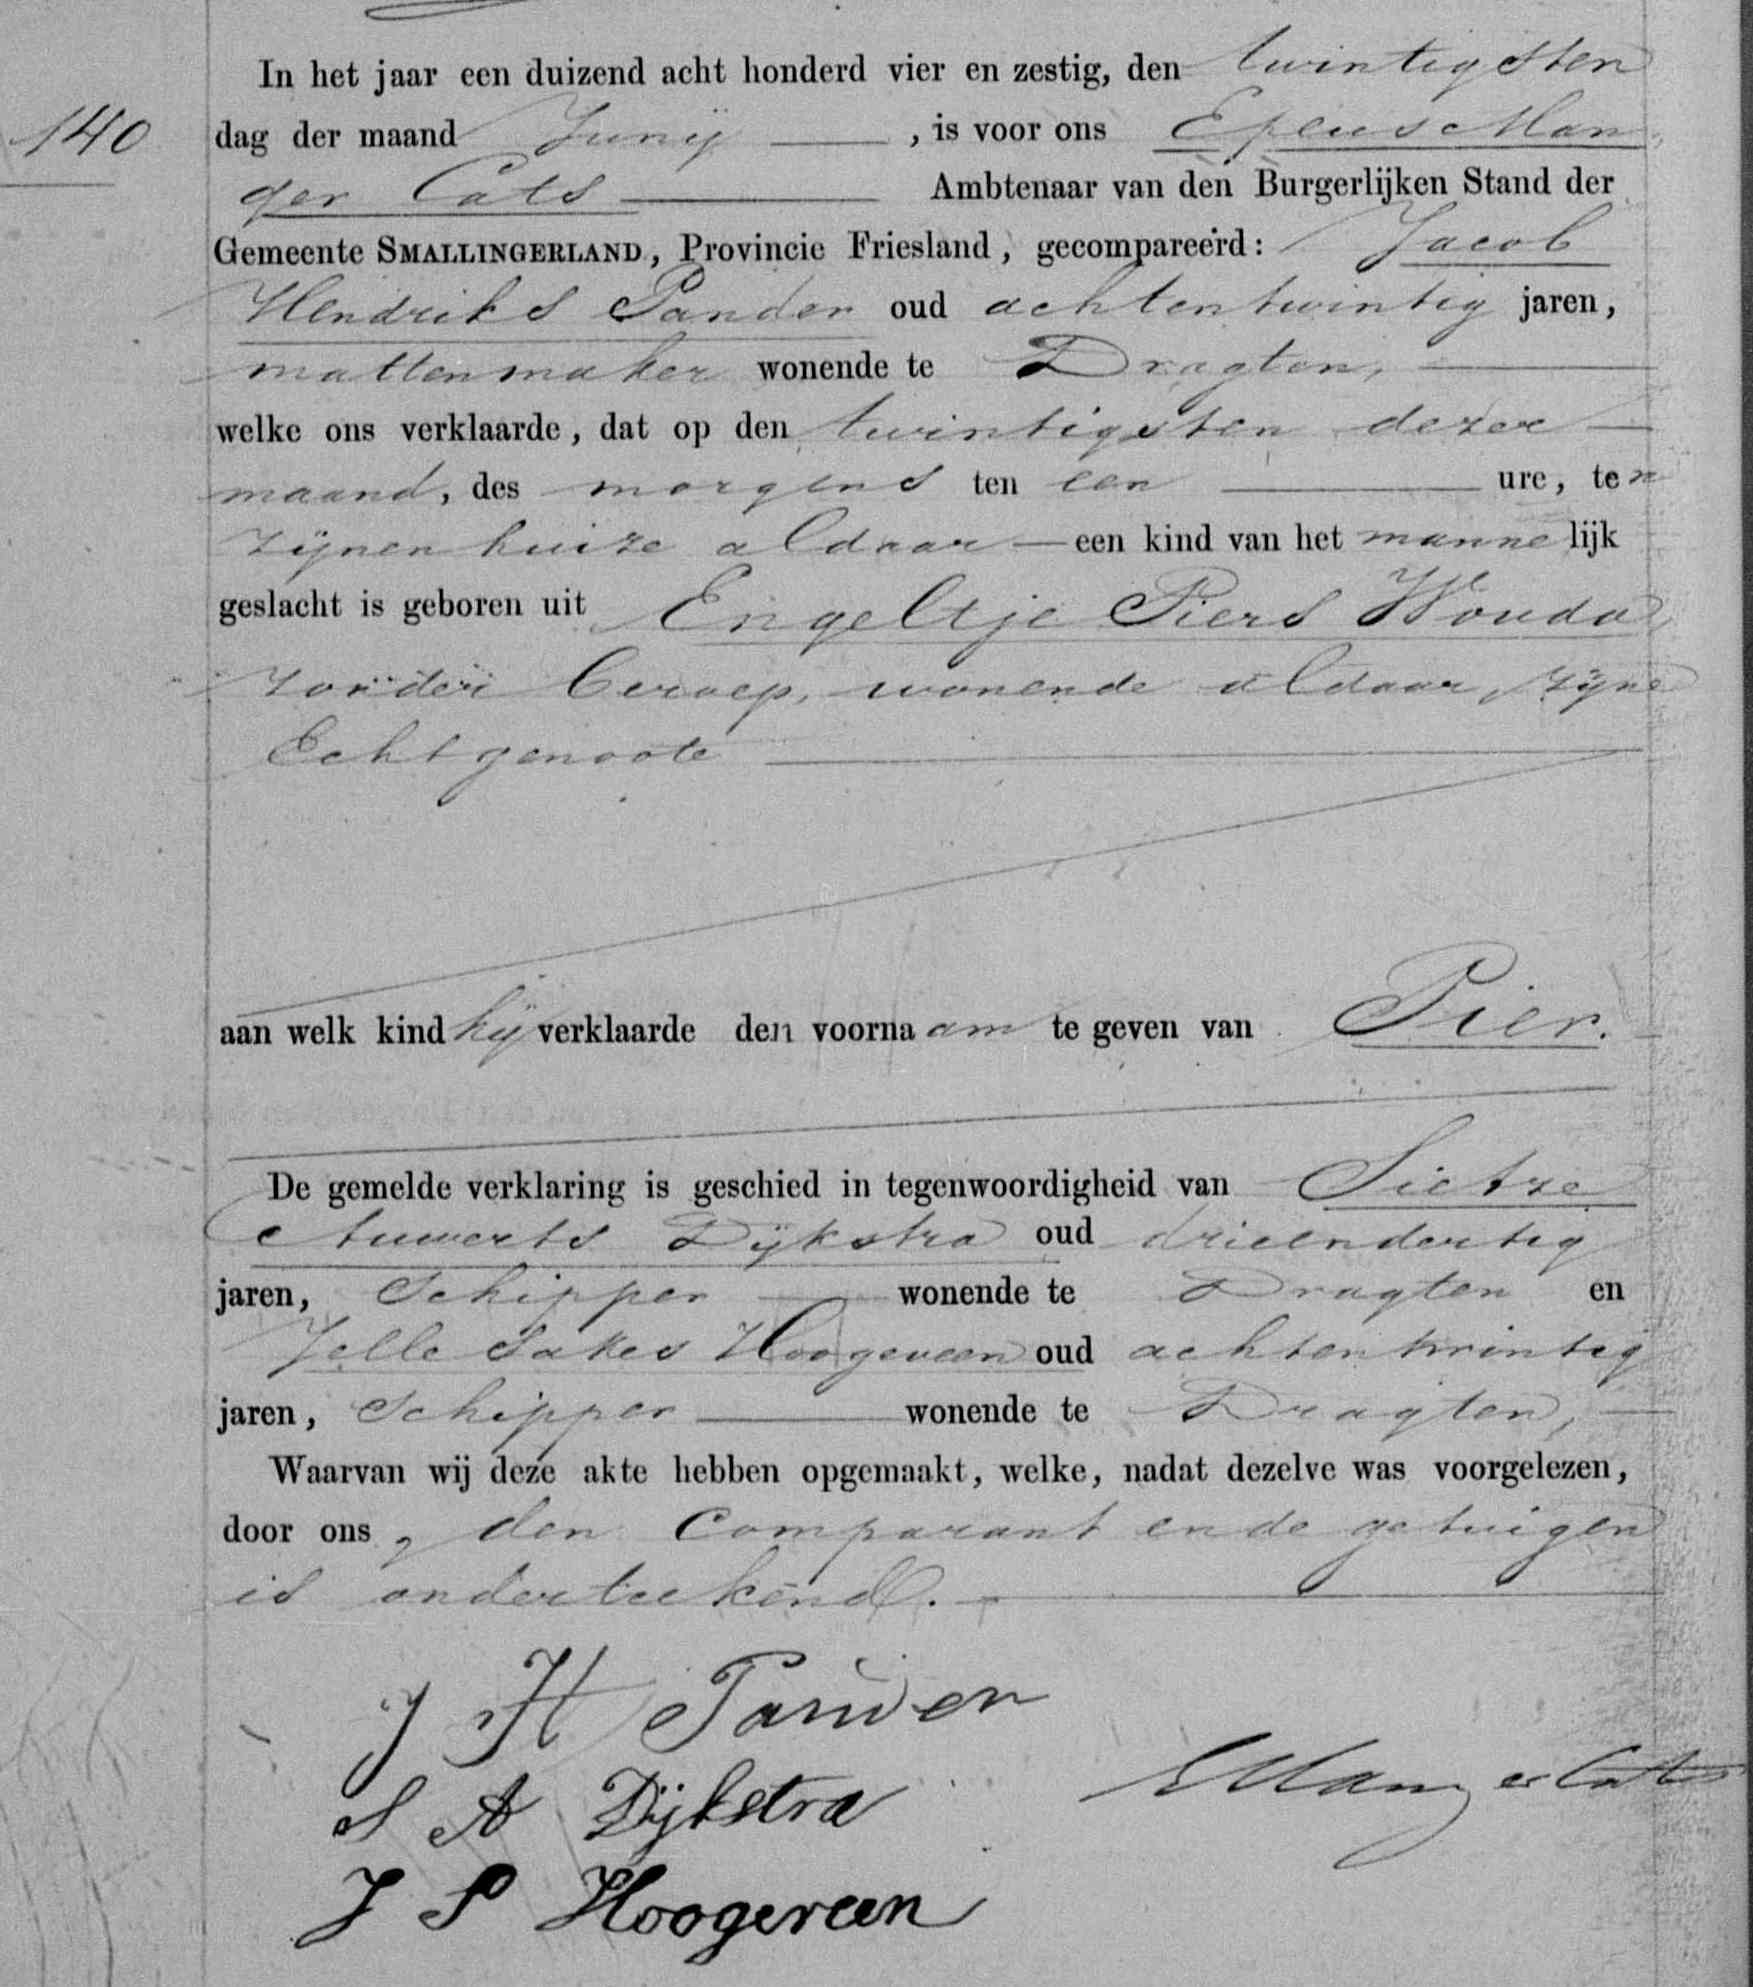 140
In het jaar een duizend acht honderd vier en zestig, den twintigsten
dag der maand Junij, is voor ons Epeus Man
ger Cats Ambtenaar van den Burgerlijken Stand der
Gemeente SMALLINGERLAND, Provincie Friesland, gecompareerd: Jacob
Hendriks Pander oud achtentwintig jaren,
mattenmaker wonende te Dragten,
welke ons verklaarde, dat op den twintigsten dezer
maand, des morgens ten een ure, ten
zijnen huize aldaar een kind van het mannelijk
geslacht is geboren uit Engeltje Piers Wouda
zonder beroep, wonende aldaar, zijne
Echtgenoote
aan welk kind hij verklaarde den voornaam te geven van Pier.
De gemelde verklaring is geschied in tegenwoordigheid van Sietze
Auwerts Dijkstra oud drieendertig
jaren, Schipper wonende te Dragten en
Jelle Sakes Hoogeveen oud achtentwintig
jaren, Schipper wonende te Dragten,
Waarvan wij deze akte hebben opgemaakt, welke, nadat dezelve was voorgelezen,
door ons, den Comparant en de getuigen
is onderteekend.
J H Pander
S A Dijkstra
EMangerCats
J S Hoogeveen